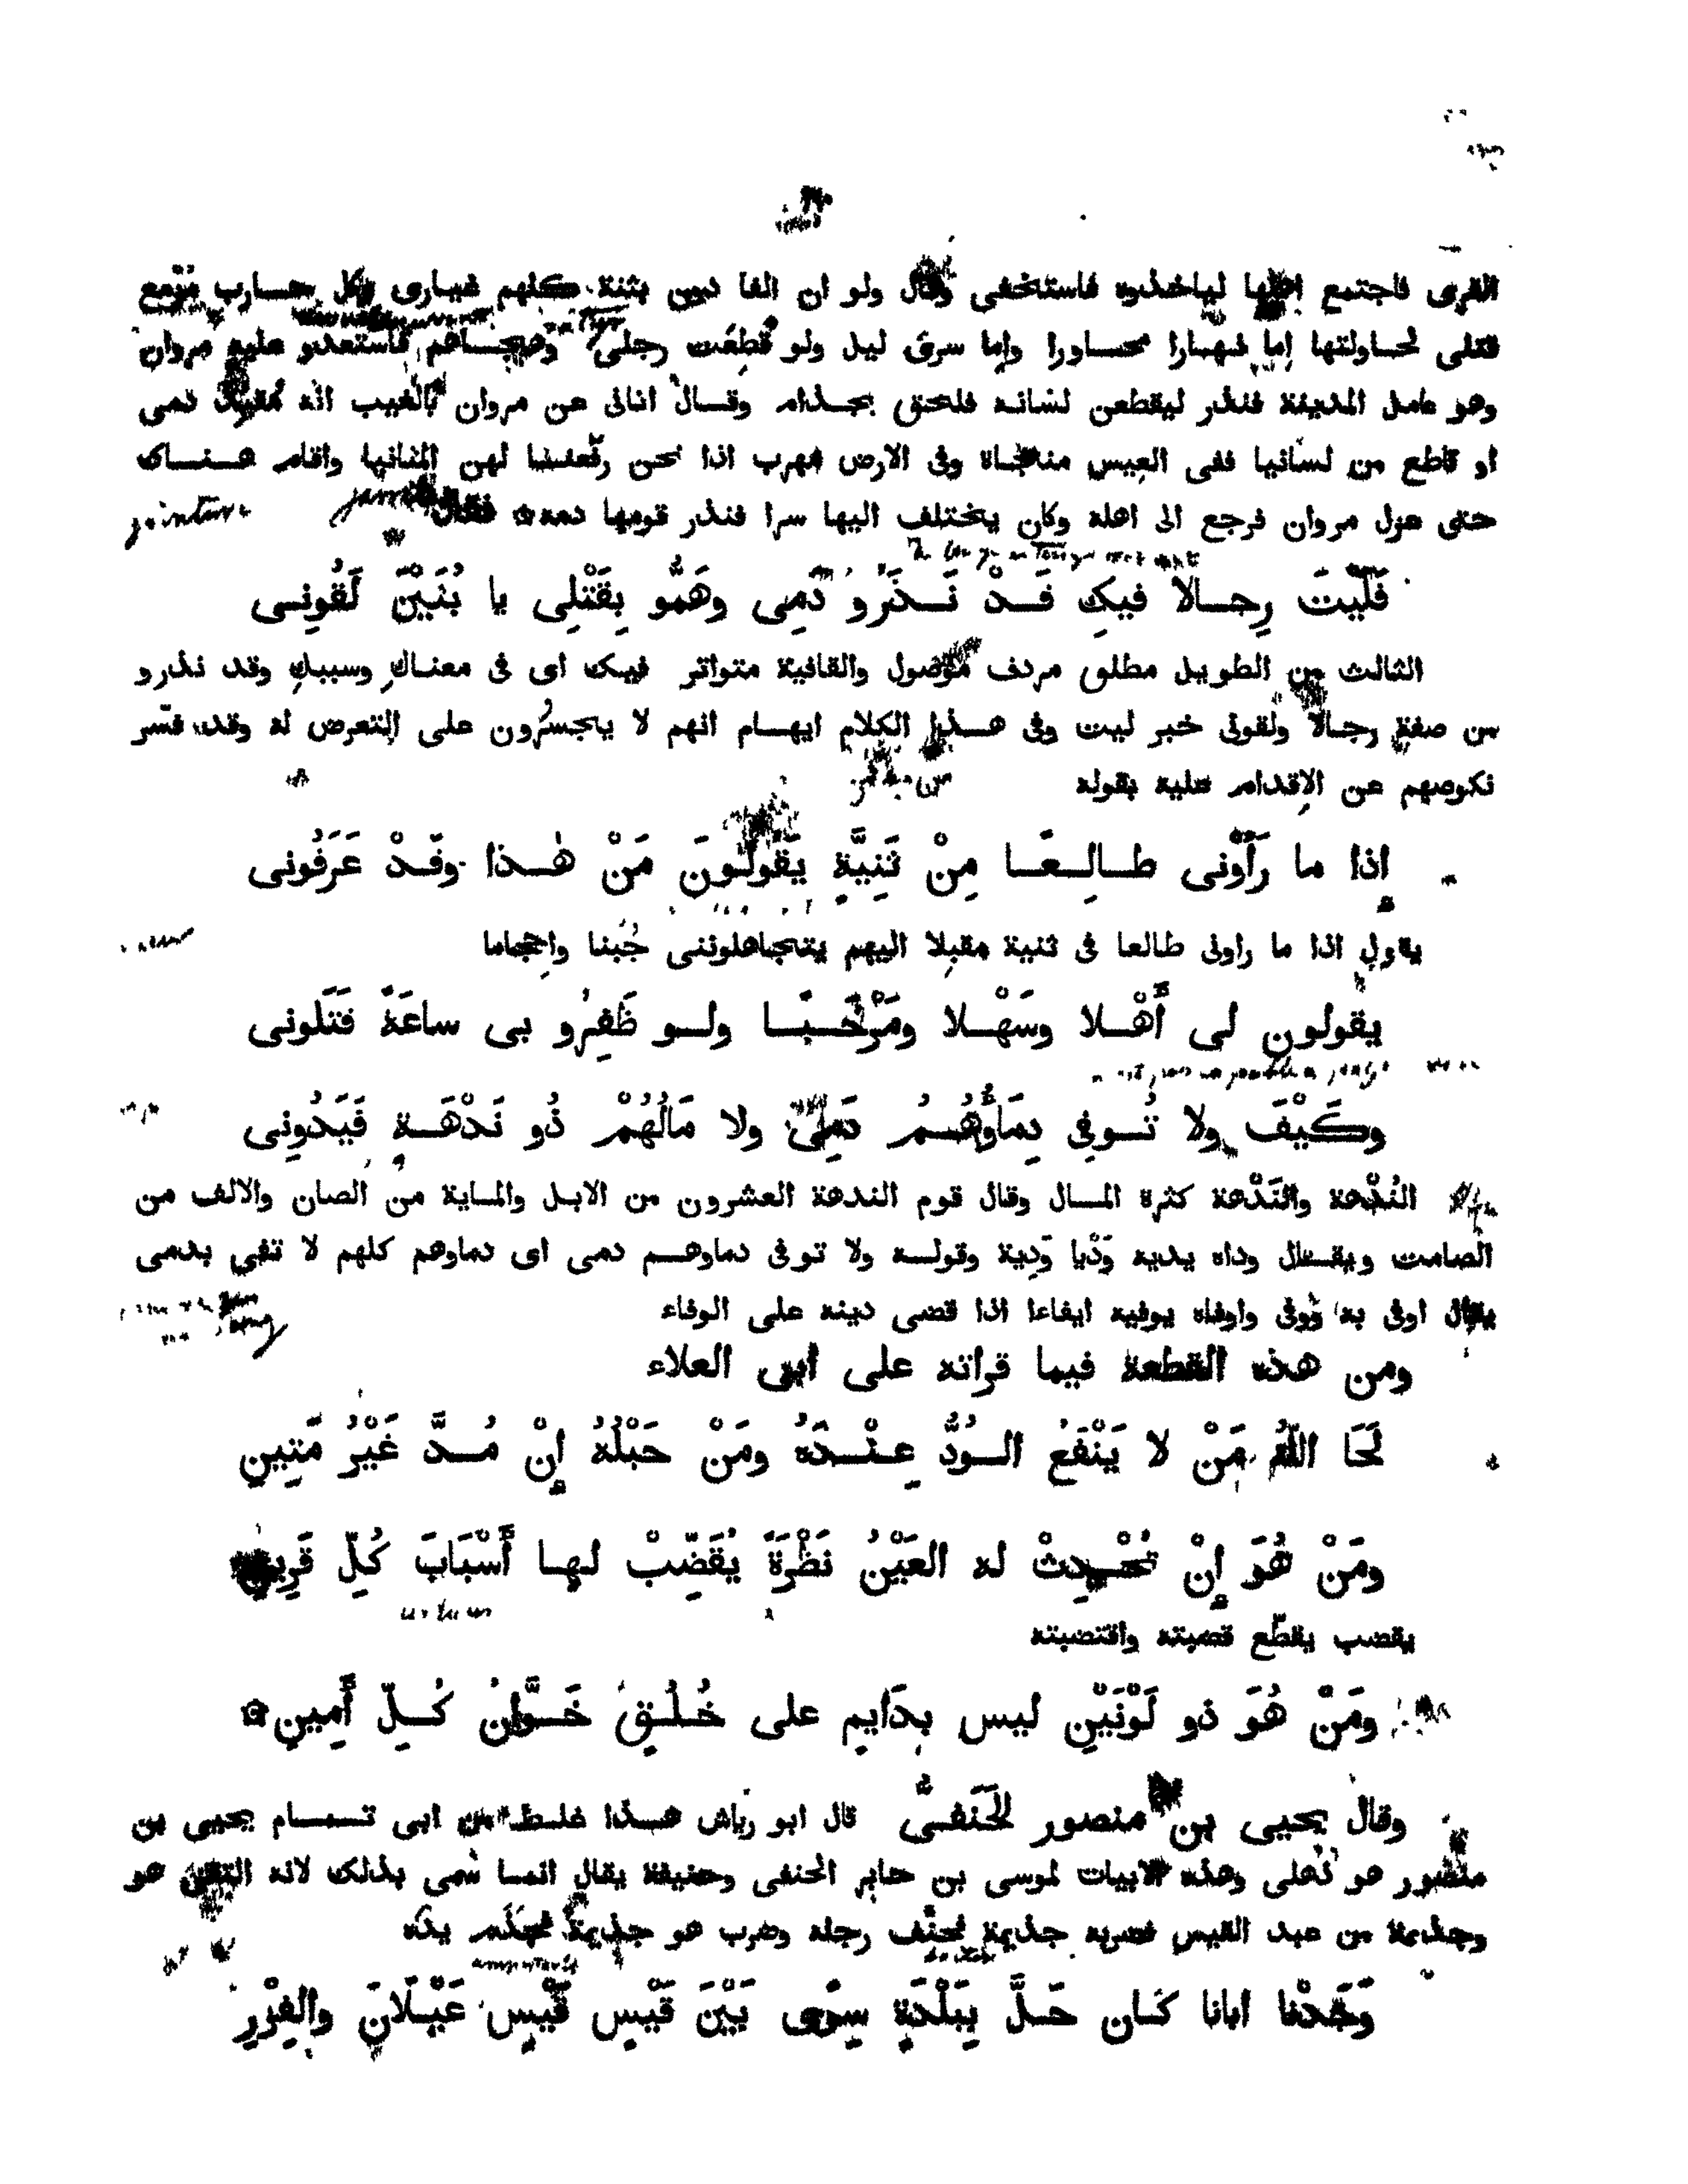 القرى فاجتمع اهلها لياخذوه فاستخفى وقال ولو ان الفا دون بثنة كلهم غيارى وكل حارب مزمع
قتلى لحاولتها إما نهارا مجاورا وإما سرى ليل ولو قطعت رجلى وهجاهم فاستعدو عليه مروان
وهو عامل المدينة فنذر ليقطعن لسانه فلحق بجذام وقال اتانى عن مروان بالغيب انه مقيد دمى
او قاطع من لسانيا ففى العيس منجاة وفى الارض مهرب اذا نحن رفّعنا لهن المثانيا واقام هناك
حتى عزل مروان فرجع الى اهله وكان يختلف اليها سرا فنذر قومها دمه فقال
فَلَيْتَ رِجالا فيكِ قَدْ نَذَرُو دَمِى وهَمُّو بِقَتْلِى يا بُثَيْنَ لَقُونِى
الثالث من الطويل مطلق مردف موصول والقافية متواتر فيك اى فى معناك وسببك وقد نذرو
من صفة رجالا ولقونى خبر ليت وفى هذا الكلام ايهام انهم لا يجسرون على التعرض له وقد فسّر
نكوصهم عن الإقدام عليه بقوله
إذا ما رَأَوْنى طالِعًا مِنْ ثَنِيَّةٍ يَقُولُونَ مَنْ هٰذا وقَدْ عَرَفُونى
يقول اذا ما راونى طالعا فى ثنية مقبلا اليهم يتجاهلوننى جُبنا وإحجاما
يقولون لى أَهْلا وسَهْلا ومَرْحَبًا ولو ظَفِرُو بى ساعَةً قَتَلونى
وكَيْفَ ولا تُوفِى دِمَاؤُهُمُ دَمِى ولا مَالُهُمْ ذُو نَدْهَةٍ فَيَدُونِى
النُدْهة والنَدْهة كثرة المال وقال قوم الندهة العشرون من الابل والماية من الضان والالف من
الصامت ويقال وداه يديه وَدْيا وَدِية وقوله ولا توفى دماوهم دمى اى دماوهم كلهم لا تفى بدمى
يقال اوفى به ووفى واوفاه يوفيه ايفاءا اذا قضى دينه على الوفاء
ومن هذه القطعة فيما قراته على ابى العلاء
لَحَا اللّٰهُ مَنْ لا يَنْفَعُ الوُدُّ عِنْدَهُ ومَنْ حَبْلُهُ إِنْ مُدَّ غَيْرُ مَتِينِ
ومَنْ هُوَ إِنْ تُحْدِثْ له العَيْنُ نَظْرَةً يُقَضِّبْ لها أَسْبَابَ كُلِّ قَرِينِ
يقضب يقطّع قضبته واقتضبته
ومَنْ هُوَ ذو لَوْنَيْنِ ليس بِدَايِمٍ على خُلُقٍ خَوَّانُ كُلِّ أَمِينِ
وقال يحيى بن منصور الحَنَفىُّ قال ابو رياش هذا غلط من ابى تمام يحيى بن
منصور هو ذهلى وهذه الابيات لموسى بن جابر الحنفى وحنيفة يقال انما سُمى بذلك لانه التقى هو
وجذيمة من عبد القيس فضربه جذيمة فحنّف رجله وضرب هو جذيمة فجذم يده
وَجَدْنا ابانا كان حَلَّ بِبَلْدَةٍ سِوًى بَيْنَ قَيْسٍ قَيْسِ عَيْلَانَ والفِزْرِ